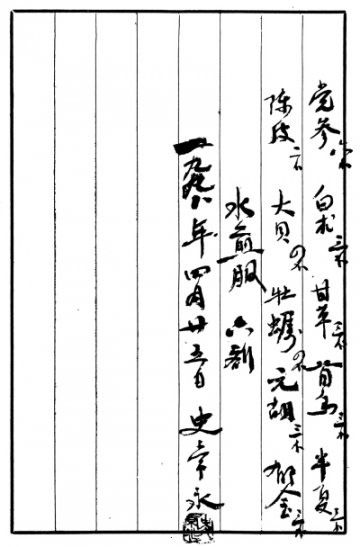 党参 白术三钱 甘草三钱 首乌三钱 半夏三钱
陈皮二钱 大贝四钱 牡蛎四钱 元胡三钱 郁金三钱
水煎服 六剂
一九九八年四月廿五日 史常永